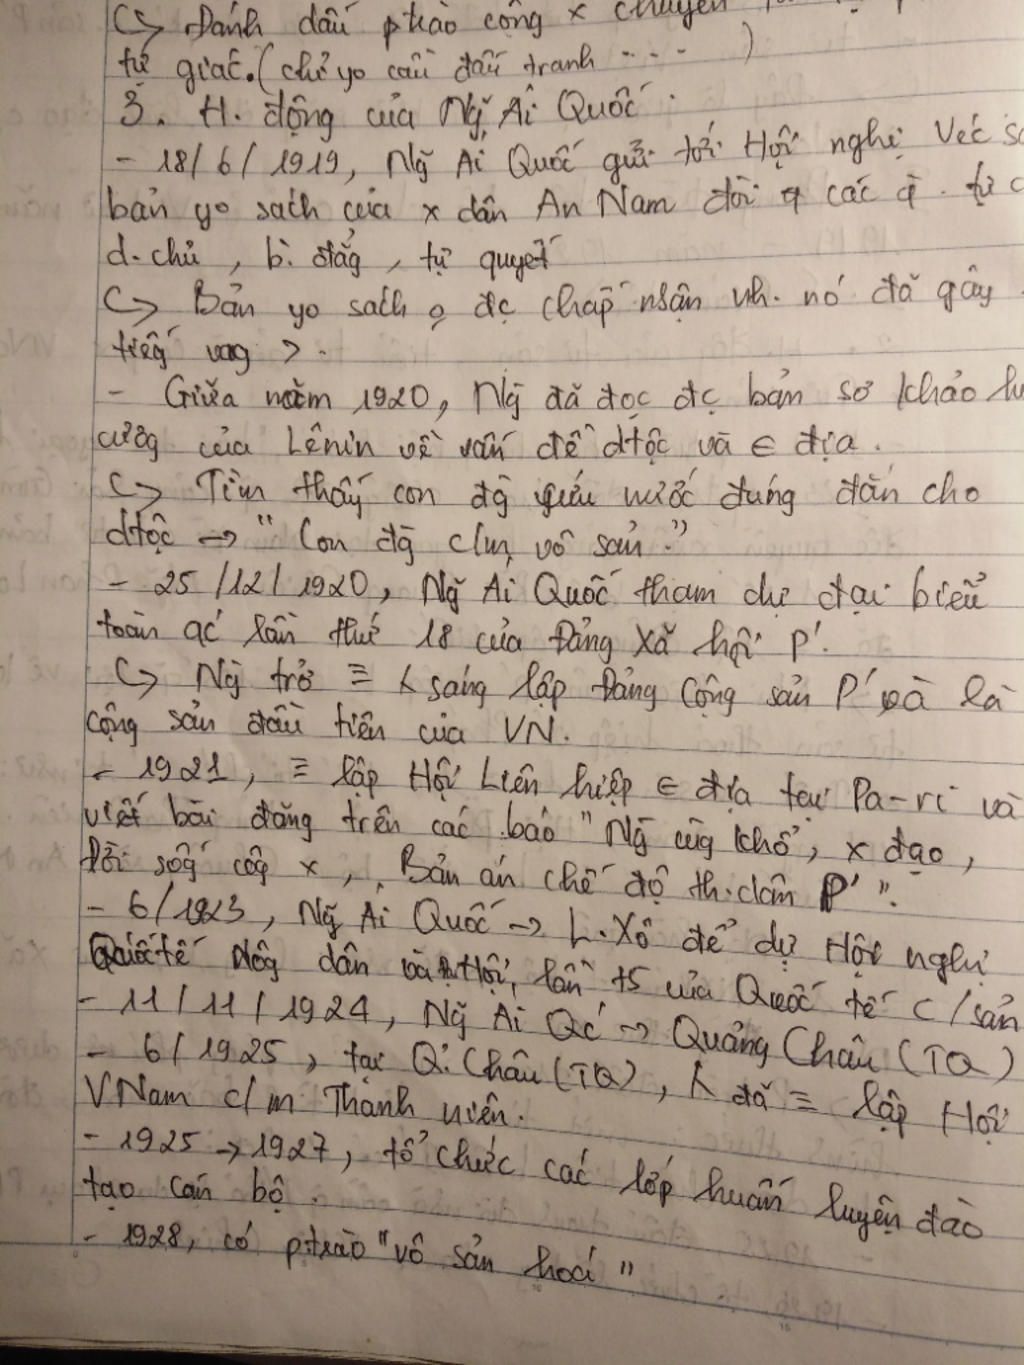 ↳ Đánh dấu ptrào công x chuyển
tự giác. (chỉ yo cầu đấu tranh ... )
3. H. động của Ng̃ Ái Quốc.
- 18/6/1919, Ng̃ Ái Quốc gửi tới Hội nghị Véc
bản yo sách của x dân An Nam đòi các q. tự
d. chủ, b. đẳg, tự quyết
↳ Bản yo sách o đc chấp nhận nh. nó đã gây
tiếg vag >.
- Giữa năm 1920, Ng̃ đã đọc đc bản sơ khảo
cươg của Lênin về vấn đề dtộc và ∈ địa.
↳ Tìm thấy con đg̃ yêu nước đúng đắn cho
dtộc → "Con đg̃ c/m vô sản."
- 25/12/1920, Ng̃ Ái Quốc tham dự đại biểu
toàn qć lần thứ 18 của Đảng Xã hội P'.
↳ Ng̃ trở ≡ k sáng lập Đảng Cộng sản P' và là
cộng sản đầu tiên của VN.
- 1921, ≡ lập Hội Liên hiệp ∈ địa tại Pa-ri và
viết bài đăng trên các báo "Ng̃ cùg khổ, x đạo,
Đời sốg côg x, Bản án chế độ th. dân P'".
- 6/1923, Ng̃ Ái Quốc → L. Xô để dự Hội nghị
Quốc tế Nôg dân Hội, lần t5 của Quốc tế c/sản
- 11/11/1924, Ng̃ Ái Qć → Quảng Châu (TQ)
- 6/1925, tại Q. Châu (TQ), k đã ≡ lập Hội
VNam c/m Thanh niên.
- 1925 → 1927, tổ chức các lớp huấn luyện đào
tạo cán bộ.
- 1928, có ptrào "vô sản hoá"